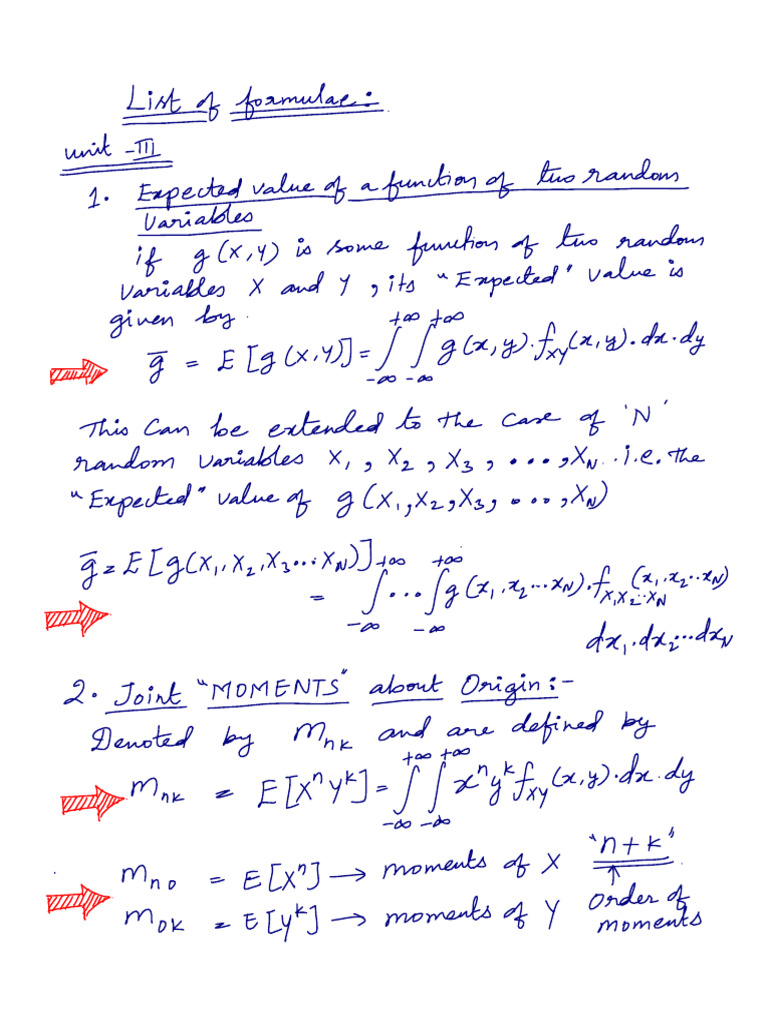 List of formulae:-
unit-III
1. Expected value of a function of two random
Variables
if g(X,Y) is some function of two random
variables X and Y, its "Expected" value is
given by
+∞ +∞
ḡ = E[g(X,Y)] = ∫ ∫ g(x,y).f_XY(x,y).dx.dy
-∞ -∞
This can be extended to the case of 'N'
random variables X₁, X₂, X₃, ..., X_N. i.e. the
"Expected" value of g(X₁,X₂,X₃, ...,X_N)
ḡ = E[g(X₁,X₂,X₃...X_N)]
+∞ +∞
= ∫...∫ g(x₁,x₂...x_N).f_X₁X₂...X_N(x₁,x₂...x_N)
-∞ -∞
dx₁.dx₂...dx_N
2. Joint "MOMENTS" about Origin:-
Denoted by m_nk and are defined by
+∞ +∞
m_nk = E[XⁿYᵏ] = ∫ ∫ xⁿyᵏ f_XY(x,y).dx.dy
-∞ -∞
"n+k"
m_n0 = E[Xⁿ] → moments of X
↑ Order of
m_0k = E[Yᵏ] → moments of Y
moments